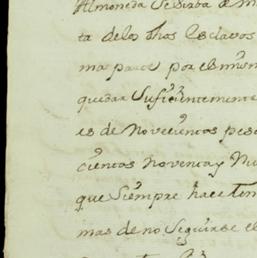 Almoneda se sirba de m
ta de los dhos esclabos
ma parte por el mism
quedar suficientemente
es de novecientos peso
cientos noventa y nu
que siempre hace ten
mas de no seguirse el